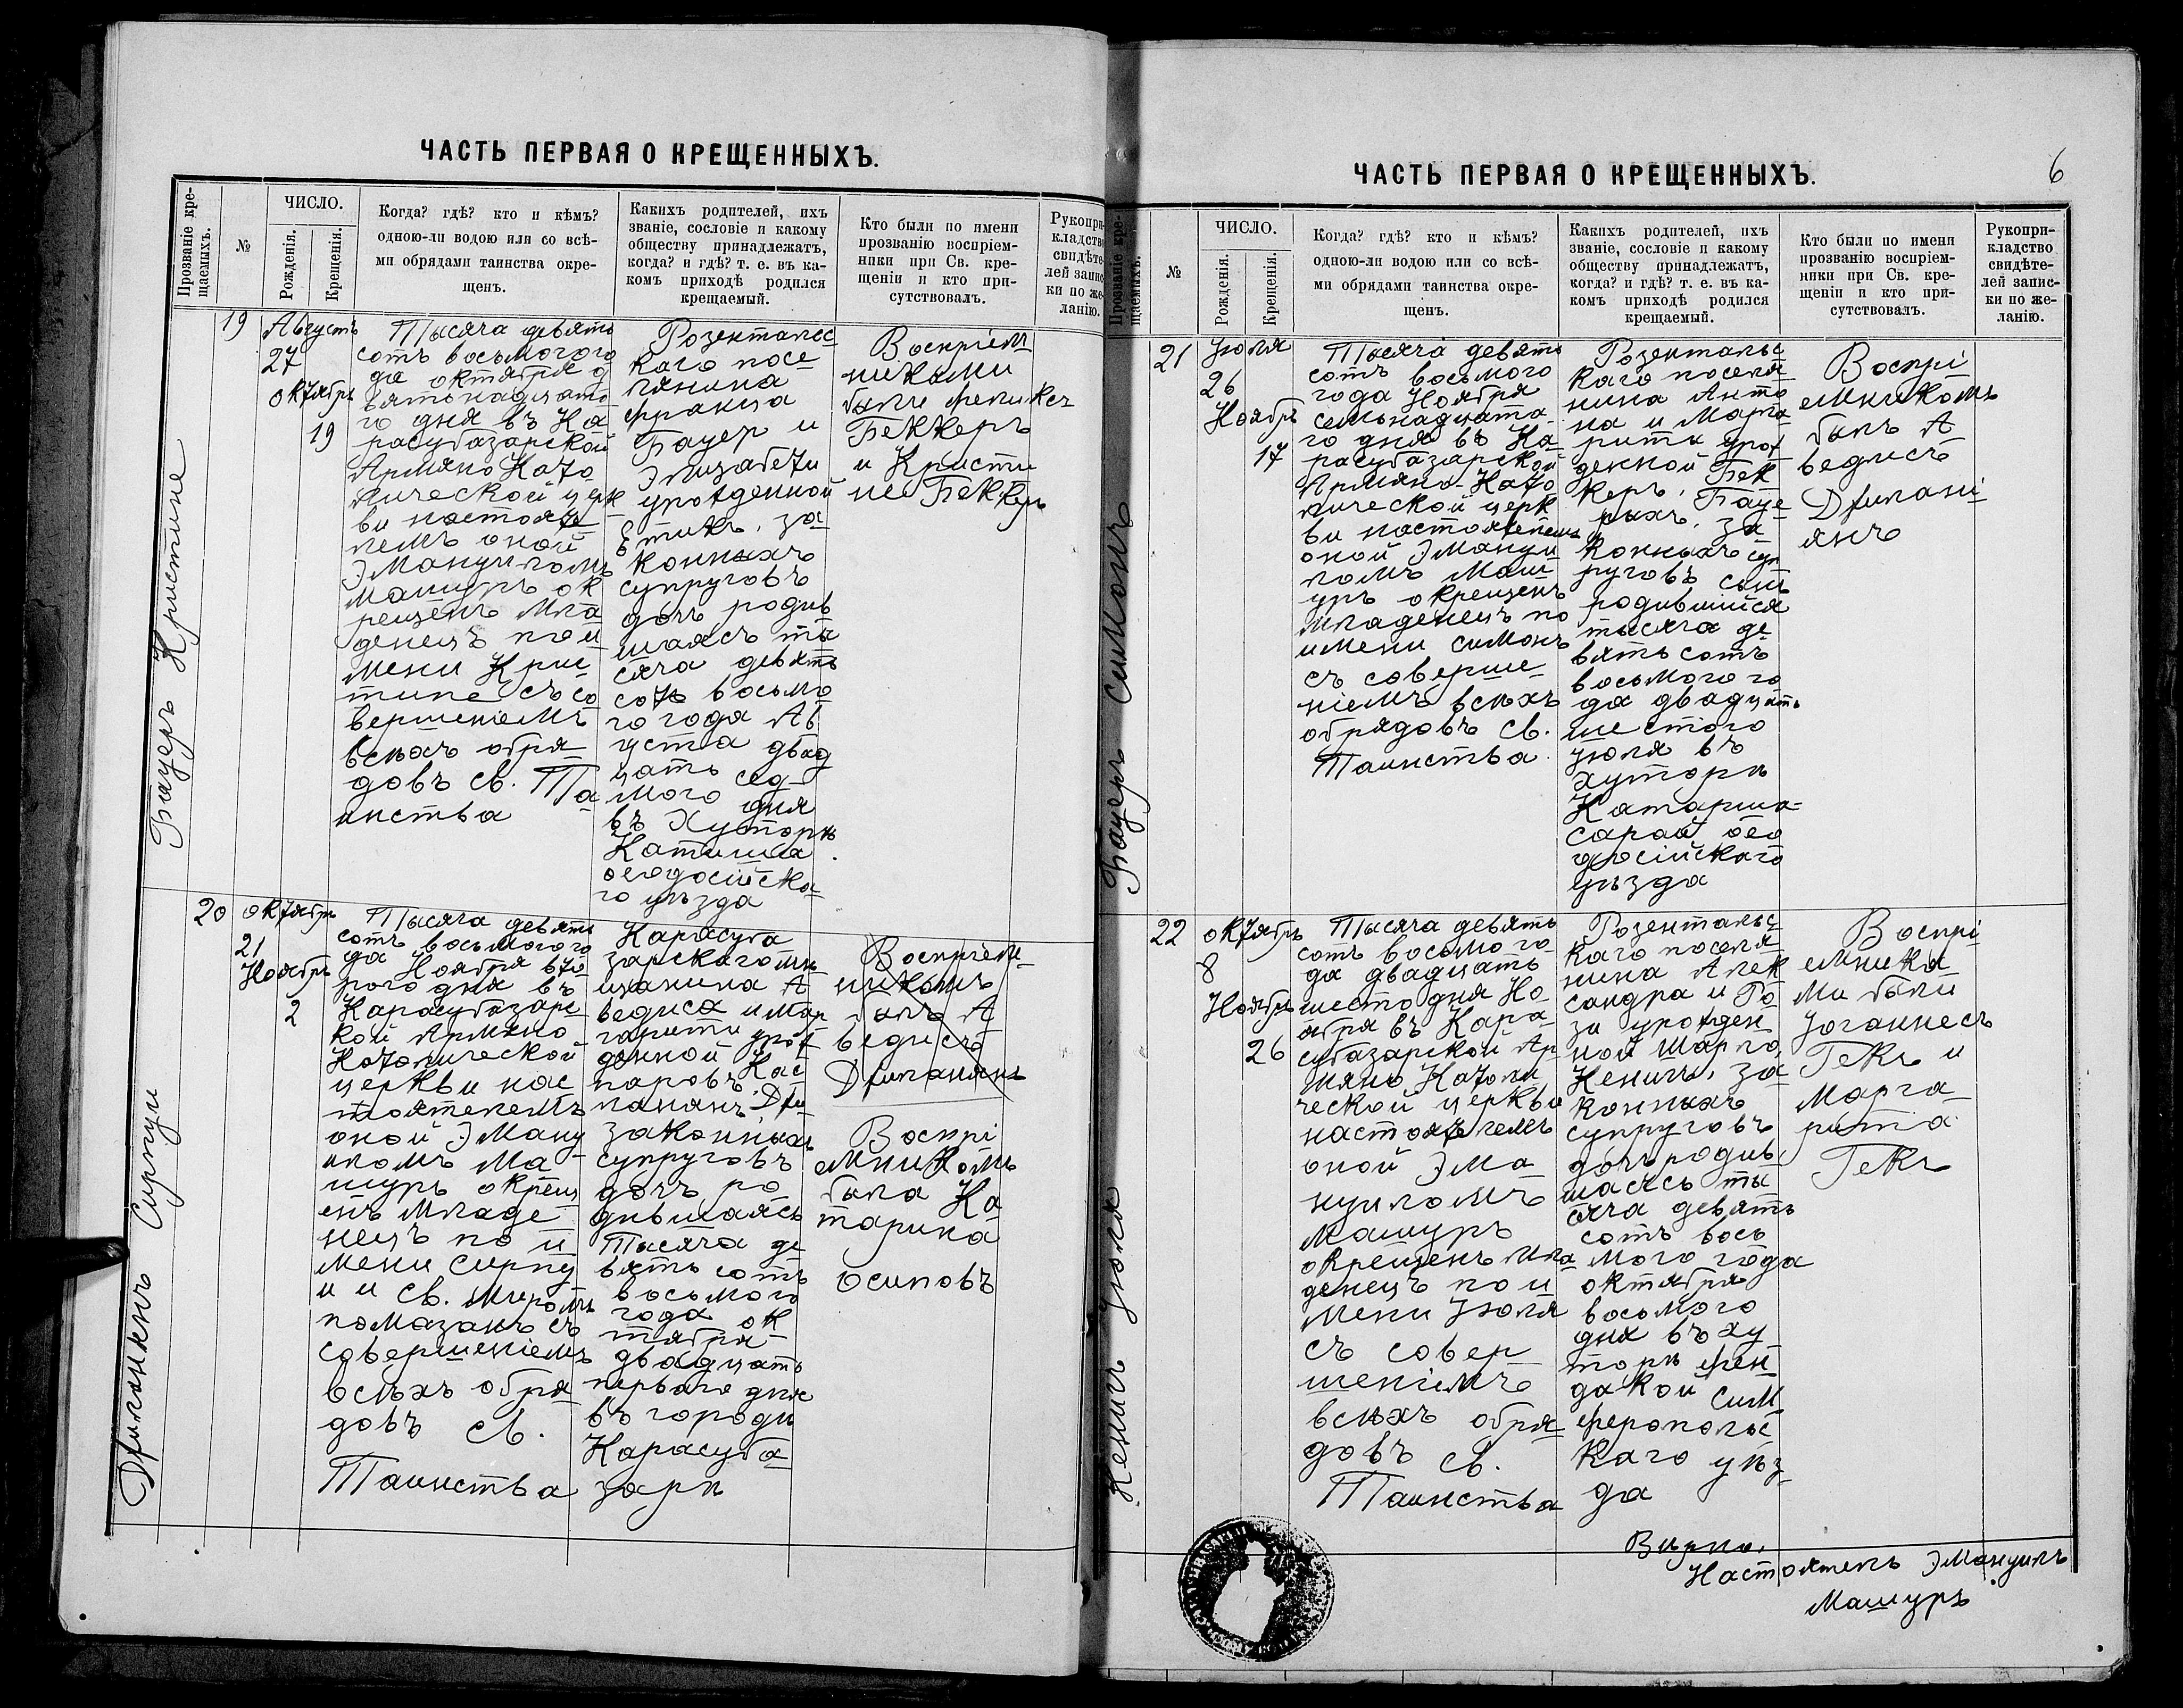 ЧАСТЬ ПЕРВАЯ О КРЕЩЕННЫХЪ.
Прозваніе кре-
щаемыхъ.
№
ЧИСЛО.
Рожденія.
Крещенія.
Когда? гдѣ? кто и кѣмъ?
одною-ли водою или со всѣ-
ми обрядами таинства окре-
щенъ.
Какихъ родителей, ихъ
званіе, сословіе и какому
обществу принадлежатъ,
когда? и гдѣ? т. е. въ ка-
комъ приходѣ родился
крещаемый.
Кто были по имени
прозванію воспріем-
ники при Св. кре-
щеніи и кто при-
сутствовалъ.
Рукопри-
кладство
свидѣте-
лей запис-
ки по же-
ланію.
Бауеръ Кристине
19
Августъ
27
октябрь
19
Тысяча девять
сотъ восьмого го
да октября д
вятнадцато
го дня въ Ка
расубазарской
Армяно Като
лической церк
ви настояте
лемъ оной
Эмануиломъ
Машуръ ок
рещенъ мла
денецъ по и
мени Крис
тине съ со
вершеніемъ
всѣхъ обря
довъ св. Та
инства
Розентальс
каго посе
лянина
Франца
Бауер и
Элизабети
урожденной
за
конныхъ
супруговъ
дочь родив
шаясъ ты
сяча девять
сотъ восьмо
го года Ав
густа двад
цать сед
мого дня
въ Хуторѣ
Катишса
ѳеодосійска
го уѣзда
Воспріем
никами
были Феликсъ
Беккеръ
и Кристи
не Беккеръ
Джиланянъ Сирпуи
20
октябрь
21
Ноябрь
2
Тысяча девять
сотъ восьмого го
да Ноября вто
рого дня въ
Карасубазарс
кой Армяно
Католической
церкви нас
тоятелемъ
оной Эману
иломъ Ма
шуръ окрещ
енъ младе
нецъ по и
мени Сирпу
и и св. миромъ
помазанъ съ
совершеніемъ
всѣхъ обря
довъ св.
Таинства
Карасуба
зарскаго мѣ
щанина А
ведиса и Мар
гарити урож
денной Кас
паровъ Джи
ланянъ
законныхъ
супруговъ
дочь ро
дившаясь
Тысяча де
вять сотъ
восьмого
года ок
тября
двадцать
первого дня
въ городѣ
Карасуба
зарѣ
Воспріем
никомъ
былъ А
ведисъ
Джиланянъ
Воспрі
емникомъ
была Ка
тарина
Осиповъ
ЧАСТЬ ПЕРВАЯ О КРЕЩЕННЫХЪ.
6
Прозваніе кре-
щаемыхъ.
№
ЧИСЛО.
Рожденія.
Крещенія.
Когда? гдѣ? кто и кѣмъ?
одною-ли водою или со всѣ-
ми обрядами таинства окре-
щенъ.
Какихъ родителей, ихъ
званіе, сословіе и какому
обществу принадлежатъ,
когда? и гдѣ? т. е. въ ка-
комъ приходѣ родился
крещаемый.
Кто были по имени
прозванію воспріем-
ники при Св. кре-
щеніи и кто при-
сутствовалъ.
Рукопри-
кладство
свидѣте-
лей запис-
ки по же-
ланію.
Бауеръ Симонъ
21
Іюля
26
Ноябрь
17
Тысяча девять
сотъ восьмого
года Ноября
семьнадцата
го дня въ Ка
расубазарской
Армяно-Като
лической церк
ви настоятелемъ
оной Эмануи
ломъ Маш
уръ окрещенъ
младенецъ по
имени Симонъ
съ соверше
ніемъ всѣхъ
обрядовъ св.
Таинства.
Розентальс
каго поселя
нина Анто
на и Марга
рити урож
денной Бек
керъ, Бауе
рыхъ, за
конныхъ суп
руговъ сынъ
родившийся
тысяча де
вять сотъ
восьмого го
да двадцать
шестого
Іюля въ
хуторѣ
Катарша-
сарай ѳео
досійскаго
уѣзда
Воспрі
емникомъ
былъ А
ведисъ
Джилані
янъ
Кенигъ Юлія
22
октябрь
8
Ноябрь
26
Тысяча девять
сотъ восьмо го
да двадцать
шесто дня Но
ября въ Кара
субазарской Ар
мяно Католи
ческой церкви
настоятелемъ
оной Эма
нуиломъ
Машуръ
окрещенъ мла
денецъ по и
мени Іюлія
съ совер
шеніемъ
всѣхъ обря
довъ св.
Таинства
Розентальс
каго поселя
нина Алек
сандра и Ро
зи урожден
ной
Кенигъ, за
конныхъ
супруговъ
дочь родив
шаясь ты
сяча девять
сотъ вось
мого года
октября
восьмого
дня въ ху
торѣ Фен
дакой Сим
феропольс
каго уѣз
да
Воспрі
емника
ми были
Іоганнесъ
Гекъ и
Марга
рита
Гекъ
Вѣрно.
Настоятель Эмануилъ
Машуръ